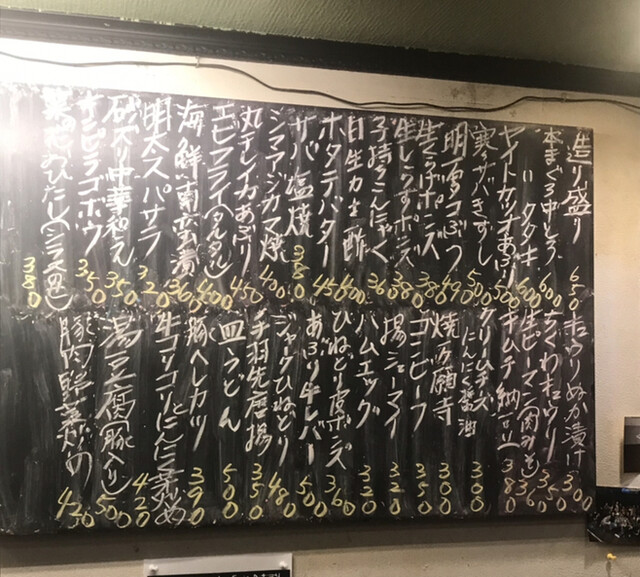 造り盛り 650
本まぐろ中とろ 600
〃 タタキ 600
ヤイトカツオあぶり 500
寒サバきずし 500
明石コぶつ 490
生ゆばポンズ 380
生しらすポンズ 380
子持ちこんにゃく 360
生カキ酢 400
ホタテバター 450
サバ塩焼 380
シマアジカマ焼 400
丸干しイカあぶり 450
エビフライ(タルタル) 400
海鮮南蛮漬 360
明太スパサラ 320
砂ズリ中華和え 350
キンピラゴボウ 350
菜の花おひたし(シラス入り) 380
キュウリぬか漬け 300
ちくわキュウリ 350
生ピーマン(肉みそ) 360
キムチ納豆 380
クリームチーズにんにく醤油 300
焼万願寺 300
コンビーフ
揚シューマイ 320
ハムエッグ 320
ひねどり皮ポンズ 360
あぶり牛レバー 500
ジャークひねどり 480
手羽先唐揚 350
皿うどん 500
豚ヘレカツ 390
牛コリコリとにんにく芽炒め 420
湯豆腐(豚入り) 500
豚肉野菜炒め 420